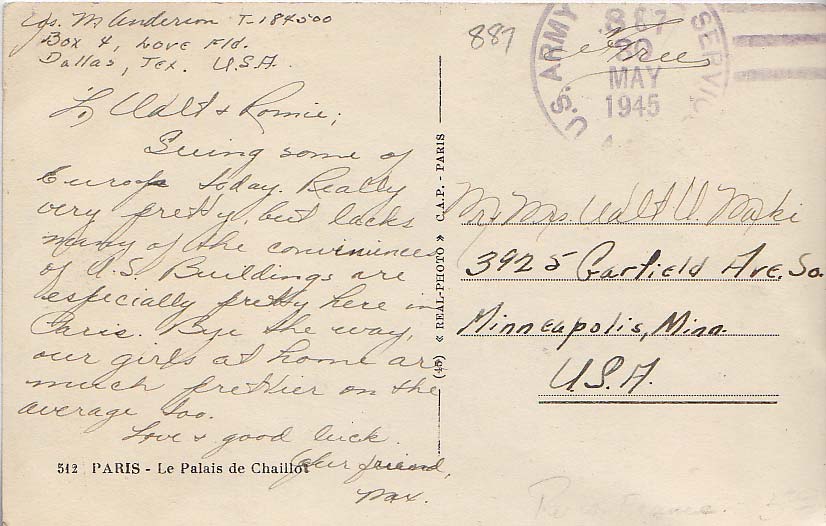 M. Anderson T-184500
Box 4, Love Fld.
Dallas, Tex. U.S.A.
To Walt & Romie;
Seeing some of
Europe today. Really
very pretty, but lacks
many of the conviniences
of U.S. Buildings are
especially pretty here in
Paris. Bye the way,
our girls at home are
much prettier on the
average too.
Love & good luck.
Your friend,
Max.
512 PARIS - Le Palais de Chaillot
(45) « REAL-PHOTO » C.A.P. - PARIS
887
Free
U.S. ARMY SERVIC
887
30
MAY
1945
Mr. Mrs. Walt U. Maki
3925 Garfield Ave. So.
Minneapolis, Minn.
U.S.A.